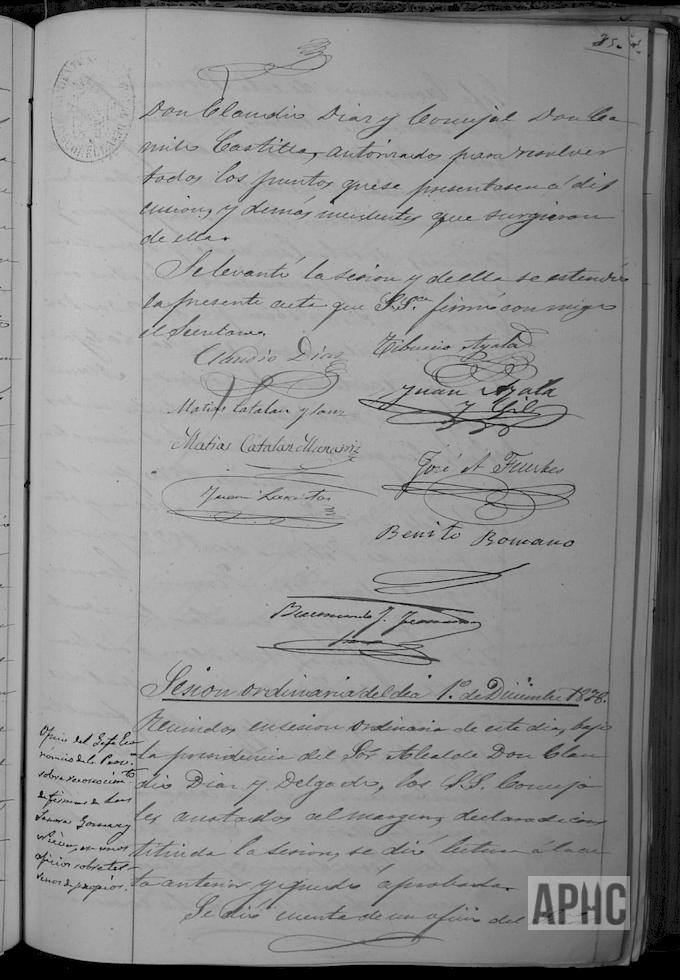 25.
Don Claudio Diaz y Concejal Don Ca
milo Castilla, autorizados para resolver
todos los puntos que se presentasen á dis
cusion, y demás incidentes que surgieran
de ella.
Se levantó la sesion y de ella se estendió
la presente acta que S.Sª. firmó con migo
el Secretario.
Claudio Diaz
Tiburcio Ayala
Juan Ayala
y Gil
Matias Catalan y Sanz
Matias Catalan Manariz
José A. Fuertes
Juan
Benito Romano
Sesion ordinaria del dia 1º de Diciembre 1878.
Reunidos en sesion ordinaria de este dia, bajo
la presidencia del Sor Alcalde Don Clau
dio Diaz y Delgado, los S.S. Conceja
les anotados al margen, declarada cons
tituida la sesion, se dió lectura á la ac
ta anterior y quedó aprobada.
Se dió cuenta de un oficio del
Oficio del Gefe Eco
nómico de la Prov.
sobre reconocimto.
de firmas de
en unos
oficios sobre ter-
renos de propios.
APHC